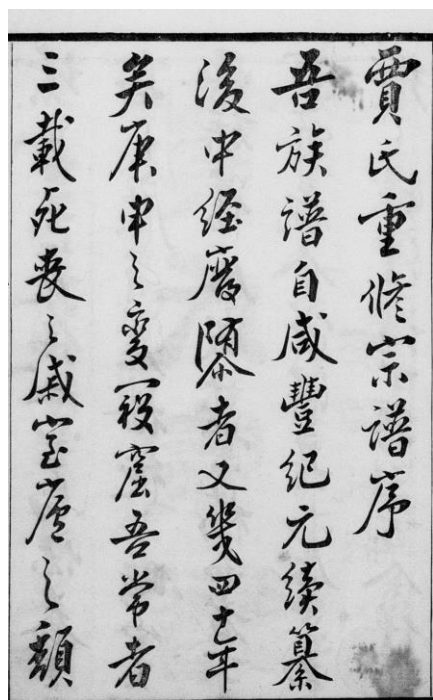 賈氏重修宗譜序
吾族譜自咸豐紀元續纂
後中經廢隳者又幾四十年
矣庚申之變窟吾常者
三載死喪之戚室廬之頹